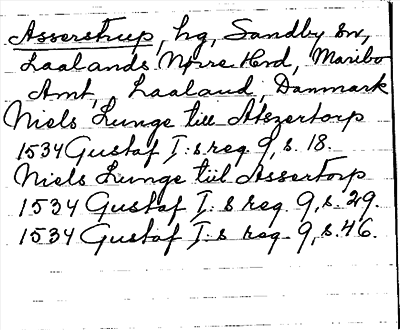 Asserstrup, hg, Sandby sn,
Laalands Nørre Hrd, Maribo
Amt, Laaland, Danmark
Niels Lunge till Atszertorp
1534 Gustaf I:s reg 9, s. 18.
Niels Lunge till Assertorp
1534 Gustaf I:s reg 9, s. 29.
1534 Gustaf I:s reg 9, s. 46.